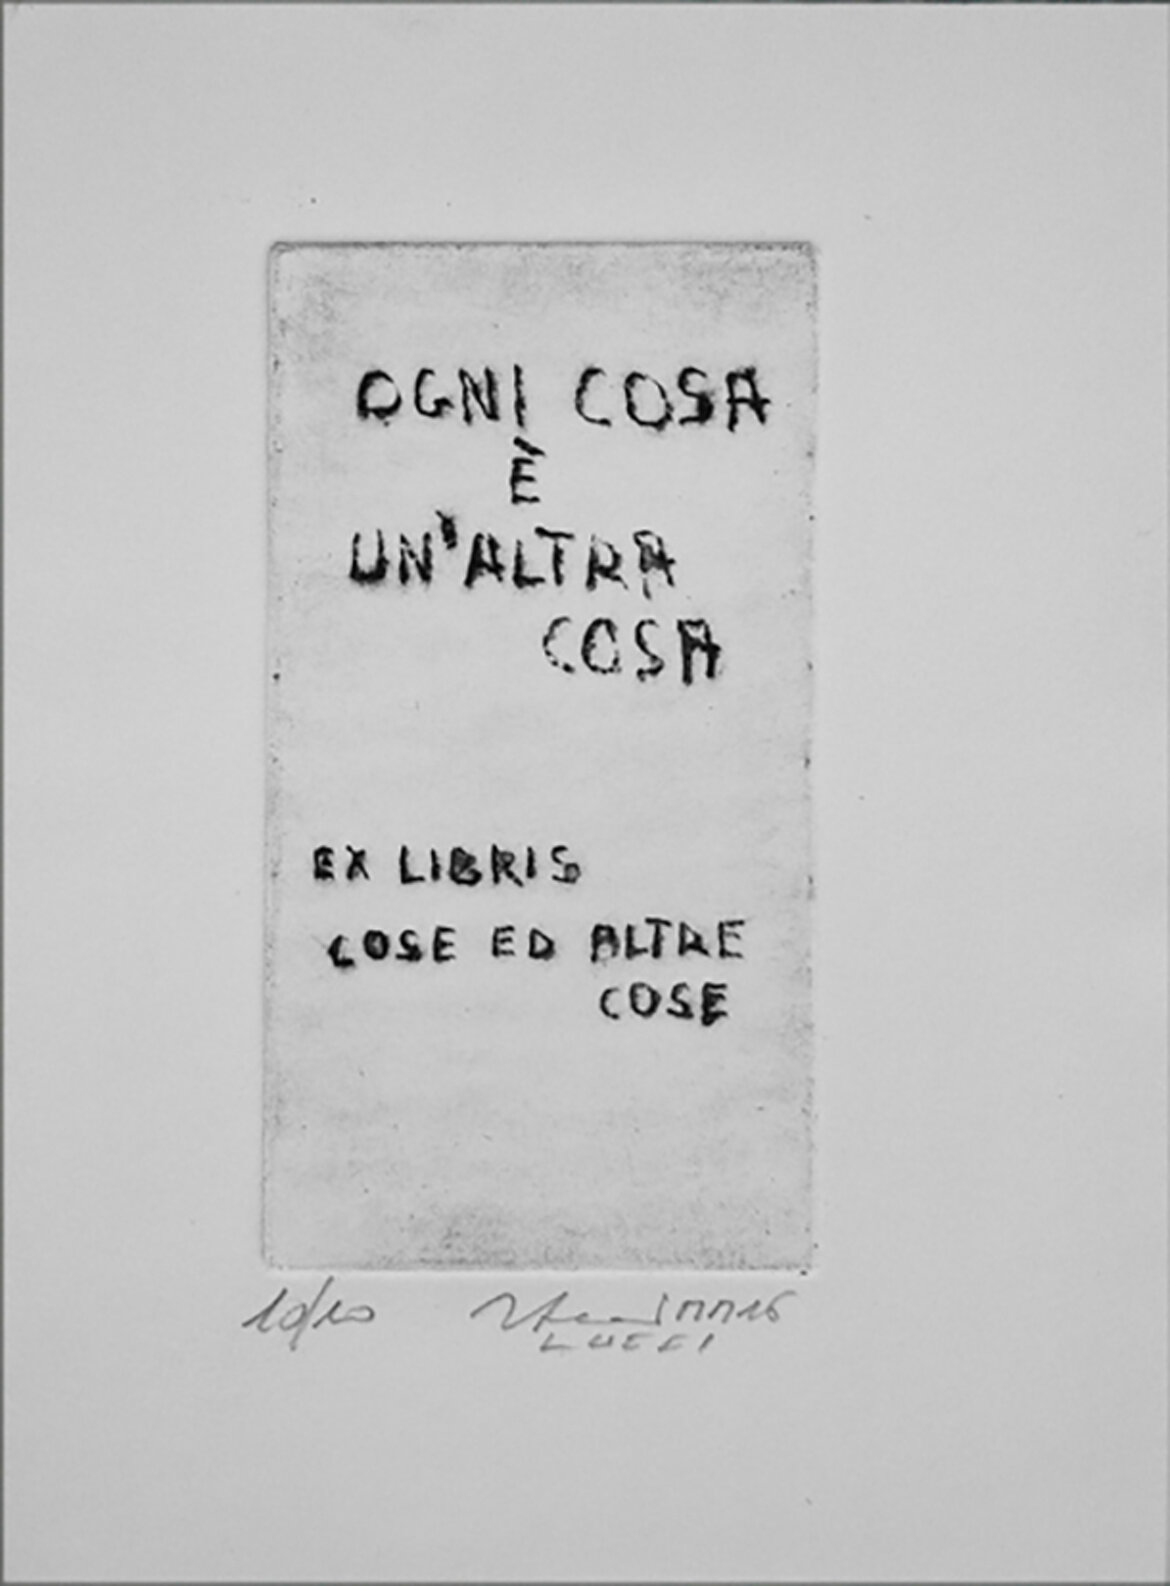 OGNI COSA
È
UN'ALTRA
COSA
EX LIBRIS
COSE ED ALTRE
COSE
10/10
LUCCI